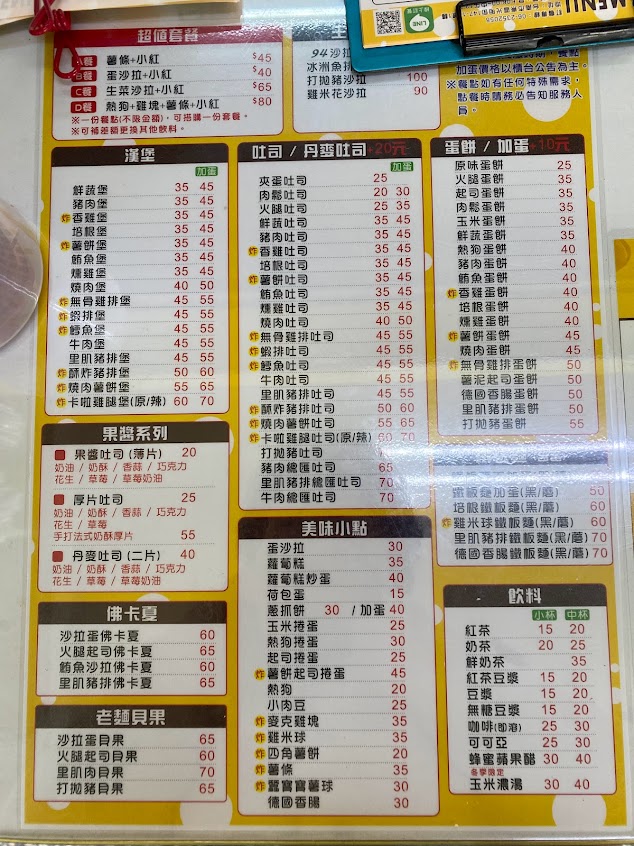 超值套餐
A餐 薯條+小紅 $45
B餐 蛋沙拉+小紅 $40
C餐 生菜沙拉+小紅 $65
D餐 熱狗+雞塊+薯條+小紅 $80
※一份餐點(不限金額),可搭購一份套餐。
※可補差額更換其他飲料。
94沙拉
冰洲魚排
打拋豬沙拉 100
雞米花沙拉 90
MENU
LINE
加蛋價格以櫃台公告為主。
※餐點如有任何特殊需求,
點餐時請務必告知服務人
員。
漢堡
加蛋
鮮蔬堡 35 45
豬肉堡 35 45
炸 香雞堡 35 45
培根堡 35 45
炸 薯餅堡 35 45
鮪魚堡 35 45
燻雞堡 35 45
燒肉堡 40 50
炸 無骨雞排堡 45 55
炸 蝦排堡 45 55
炸 鱈魚堡 45 55
牛肉堡 45 55
里肌豬排堡 45 55
炸 酥炸豬排堡 50 60
炸 燒肉薯餅堡 55 65
炸 卡啦雞腿堡(原/辣) 60 70
果醬系列
果醬吐司(薄片) 20
奶油 / 奶酥 / 香蒜 / 巧克力
花生 / 草莓 / 草莓奶油
厚片吐司 25
奶油 / 奶酥 / 香蒜 / 巧克力
花生 / 草莓
手打法式奶酥厚片 55
丹麥吐司(二片) 40
奶油 / 奶酥 / 香蒜 / 巧克力
花生 / 草莓 / 草莓奶油
佛卡夏
沙拉蛋佛卡夏 60
火腿起司佛卡夏 65
鮪魚沙拉佛卡夏 60
里肌豬排佛卡夏 65
老麵貝果
沙拉蛋貝果 65
火腿起司貝果 60
里肌肉貝果 70
打拋豬貝果 65
吐司 / 丹麥吐司+20元
加蛋
夾蛋吐司 25
肉鬆吐司 20 30
火腿吐司 25 35
鮮蔬吐司 35 45
豬肉吐司 35 45
炸 香雞吐司 35 45
培根吐司 35 45
炸 薯餅吐司 35 45
鮪魚吐司 35 45
燻雞吐司 35 45
燒肉吐司 40 50
炸 無骨雞排吐司 45 55
炸 蝦排吐司 45 55
炸 鱈魚吐司 45 55
牛肉吐司 45 55
里肌豬排吐司 45 55
炸 酥炸豬排吐司 50 60
炸 燒肉薯餅吐司 55 65
炸 卡啦雞腿吐司(原/辣) 60 70
打拋豬吐司 55
豬肉總匯吐司 65
里肌豬排總匯吐司 70
牛肉總匯吐司 70
美味小點
蛋沙拉 30
蘿蔔糕 35
蘿蔔糕炒蛋 40
荷包蛋 15
蔥抓餅 30 / 加蛋 40
玉米捲蛋 25
熱狗捲蛋 30
起司捲蛋 25
炸 薯餅起司捲蛋 45
熱狗 20
小肉豆 25
炸 麥克雞塊 35
炸 雞米球 35
炸 四角薯餅 20
炸 薯條 35
炸 蠶寶寶薯球 30
德國香腸 30
蛋餅 / 加蛋+10元
原味蛋餅 25
火腿蛋餅 35
起司蛋餅 35
肉鬆蛋餅 35
玉米蛋餅 35
鮮蔬蛋餅 35
熱狗蛋餅 40
豬肉蛋餅 40
鮪魚蛋餅 40
炸 香雞蛋餅 40
培根蛋餅 40
燻雞蛋餅 40
炸 薯餅蛋餅 45
燒肉蛋餅 45
炸 無骨雞排蛋餅 50
薯泥起司蛋餅 50
德國香腸蛋餅 50
里肌豬排蛋餅 50
打拋豬蛋餅 55
鐵板麵加蛋(黑/蘑) 50
培根鐵板麵(黑/蘑) 60
炸 雞米球鐵板麵(黑/蘑) 60
里肌豬排鐵板麵(黑/蘑) 70
德國香腸鐵板麵(黑/蘑) 70
飲料
小杯 中杯
紅茶 15 20
奶茶 20 25
鮮奶茶 35
紅茶豆漿 15 20
豆漿 15 20
無糖豆漿 15 20
咖啡(即溶) 25 30
可可亞 25 30
蜂蜜蘋果醋 30 40
冬季限定
玉米濃湯 30 40